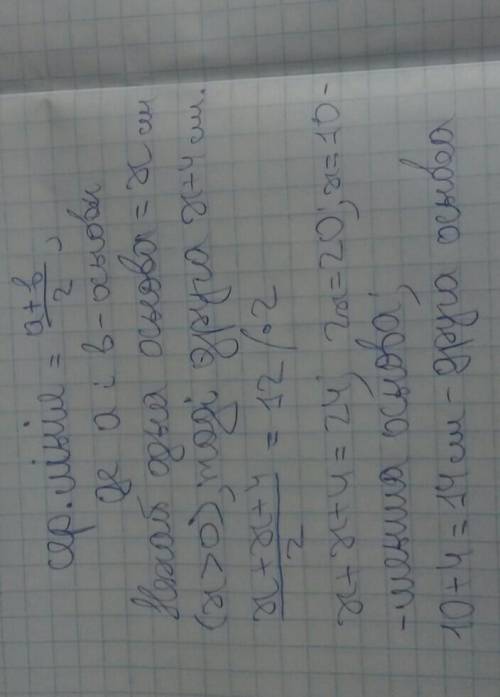 сер. лінія = a+b/2,
де a і b - основи
Нехай одна основа = x см
(x>0), тоді друга x+4 см.
x+x+4/2 = 12 /·2
x+x+4=24; 2x=20; x=10-
-менша основа;
10+4=14см - друга основа